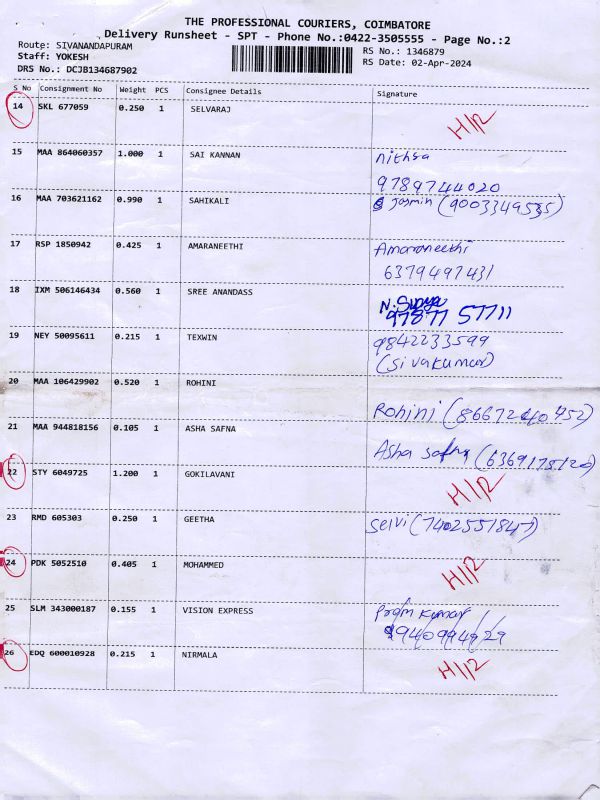 THE PROFESSIONAL COURIERS, COIMBATORE
Delivery Runsheet - SPT - Phone No.:0422-3505555 - Page No.:2
Route: SIVANANDAPURAM
Staff: YOKESH
DRS No.: DCJB134687902
RS No.: 1346879
RS Date: 02-Apr-2024
S No Consignment No Weight PCS Consignee Details Signature
14 SKL 677059 0.250 1 SELVARAJ H/R
15 MAA 864060357 1.000 1 SAI KANNAN Nithya
9789744020
16 MAA 703621162 0.990 1 SAHIKALI Jasmin (9003349535)
17 RSP 1850942 0.425 1 AMARANEETHI Amaraneethi
6379497431
18 IXM 506146434 0.560 1 SREE ANANDASS N. Surya
97877 57711
19 NEY 50095611 0.215 1 TEXWIN 9842233599
(Sivakumar)
20 MAA 106429902 0.520 1 ROHINI
Rohini (8667240752)
21 MAA 944818156 0.105 1 ASHA SAFNA
Asha Safna (6369175120)
22 STY 6049725 1.200 1 GOKILAVANI H/R
23 RMD 605303 0.250 1 GEETHA Selvi (7402551847)
24 PDK 5052510 0.405 1 MOHAMMED H/R
25 SLM 343000187 0.155 1 VISION EXPRESS Prem Kumar
26 EDQ 600010928 0.215 1 NIRMALA H/R